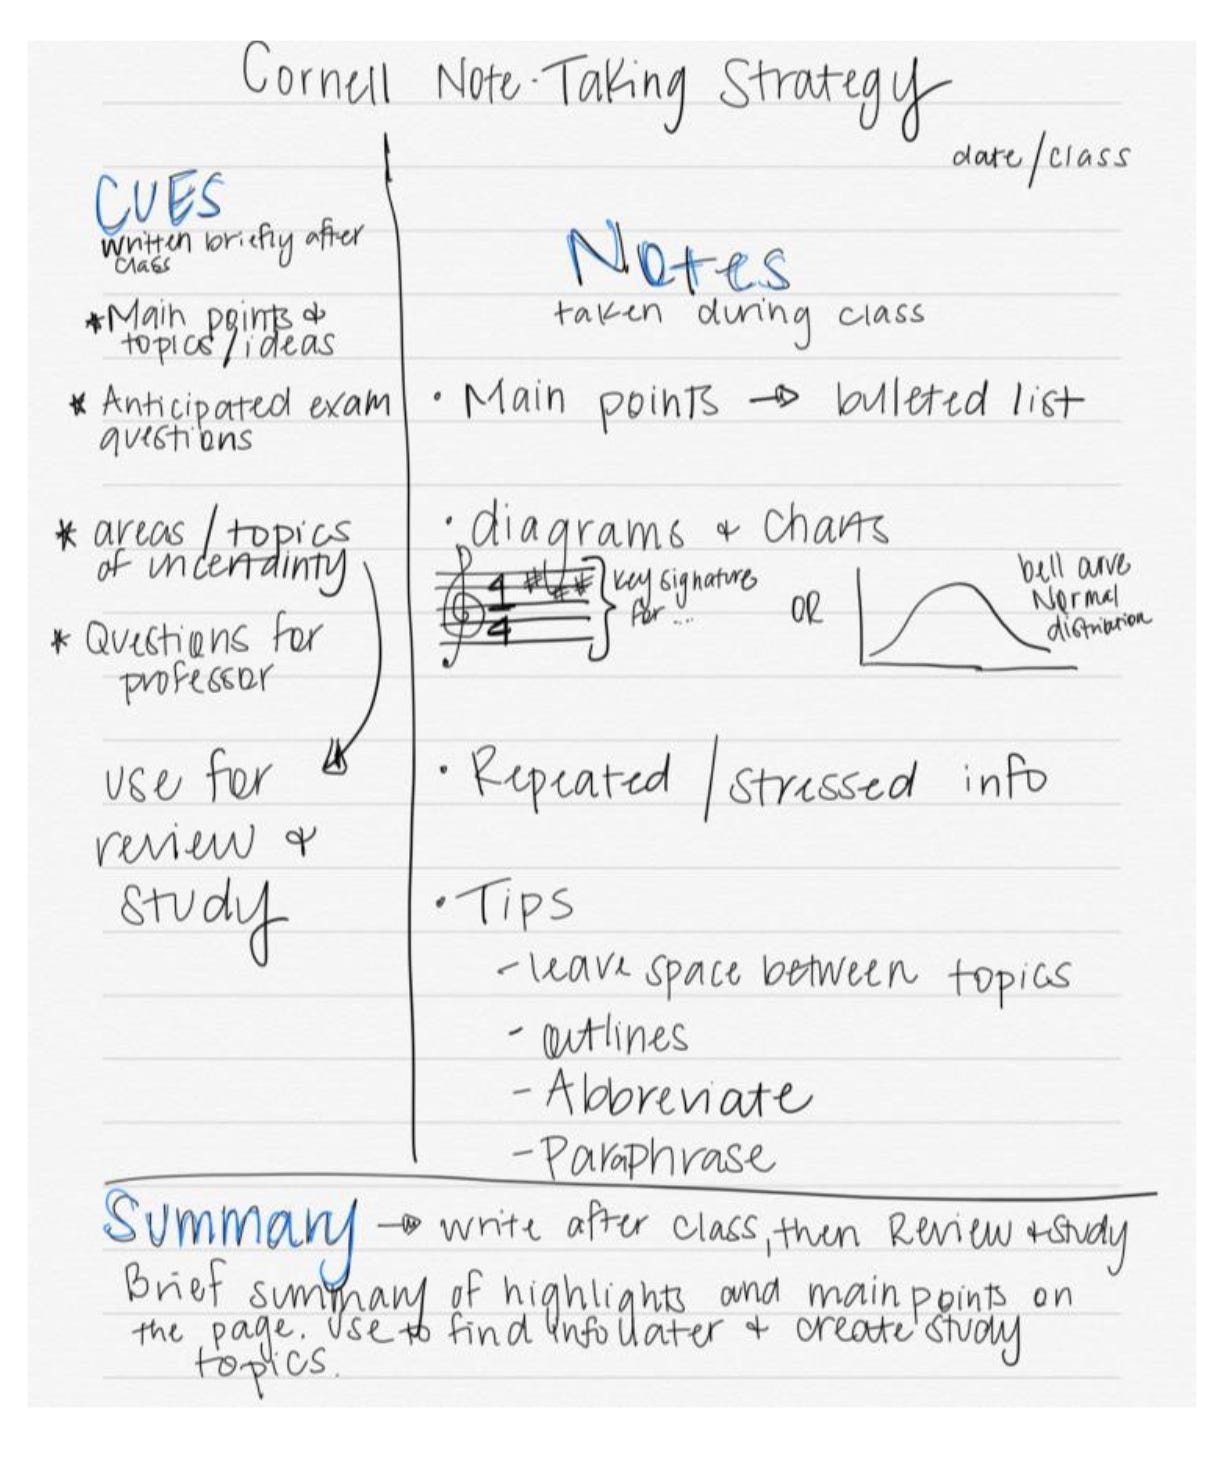 Cornell Note-Taking Strategy
date/class
CUES
written briefly after
class
*Main points &
topics/ideas
* Anticipated exam
questions
* areas/topics
of uncertainty
* Questions for
professor
use for
review &
study
Notes
taken during class
· Main points → bulleted list
· diagrams & Charts
4
4
key signature
for ...
OR
bell curve
Normal
distribution
· Repeated / stressed info
· Tips
- leave space between topics
- outlines
- Abbreviate
- Paraphrase
Summary → write after class, then Review & study
Brief summary of highlights and main points on
the page. Use to find info later & create study
topics.